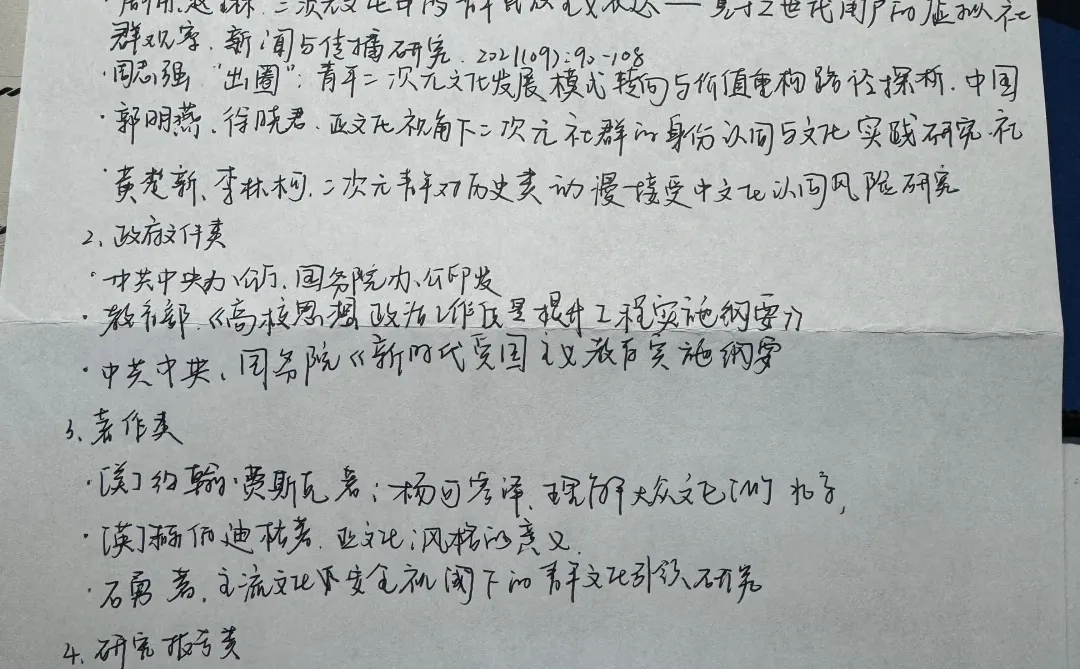 二次元文化中的青年民族主义状态——基于Z世代用户的虚拟社
群观察. 新闻与传播研究. 2021(09):90-108
·周志强 "出圈": 青年二次元文化发展模式转向与价值重构路径探析. 中国
·郭明燕、徐晓君. 亚文化视角下二次元社群的身份认同与文化实践研究. 社
·黄楚新、李林柯. 二次元青年对历史类动漫接受中文化认同风险研究
2、政府文件类
·中共中央办公厅、国务院办公印发
·教育部.《高校思想政治工作质量提升工程实施纲要》
·中共中央、国务院《新时代爱国主义教育实施纲要
3、著作类
·[美]约翰·费斯克著; 杨可译. 理解大众文化[M] 北京,
·[英]赫伯迪格著. 亚文化:风格的意义.
·石勇著. 主流文化安全视阈下的青年文化引领研究
4、研究报告类